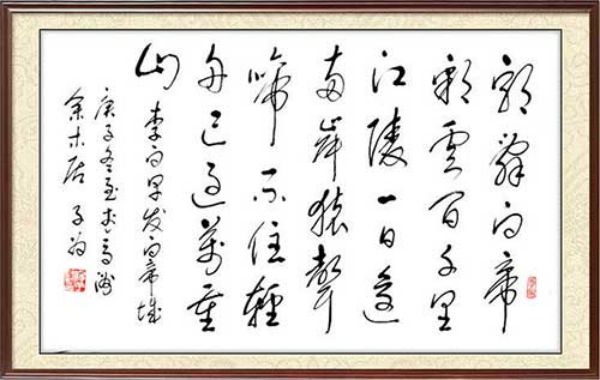 朝辞白帝
彩雲间千里
江陵一日還
两岸猿聲
啼不住輕
舟已过萬重
山
李白早发白帝城
庚子冬至於
木居